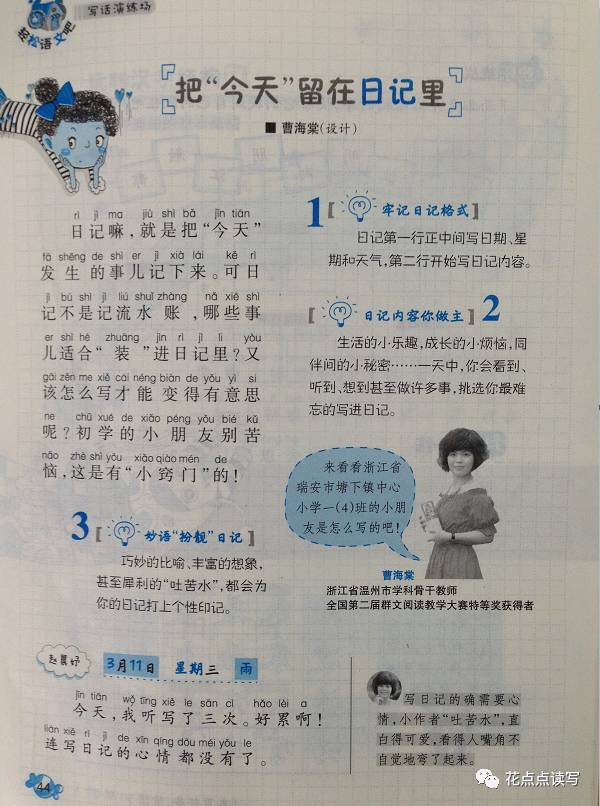 写话演练场
轻松语文吧
把“今天”留在日记里
■ 曹海棠(设计)
rì jì ma jiù shì bǎ jīn tiān
日记嘛，就是把“今天”
fā shēng de shì er jì xià lái kě rì
发生的事儿记下来。可日
jì bú shì jì liú shuǐ zhàng nǎ xiē shì
记不是记流水账，哪些事
er shì hé zhuāng jìn rì jì lǐ yòu
儿适合“装”进日记里？又
gāi zěn me xiě cái néng biàn de yǒu yì si
该怎么写才能变得有意思
ne chū xué de xiǎo péng yǒu bié kǔ
呢？初学的小朋友别苦
nǎo zhè shì yǒu xiǎo qiào mén de
恼，这是有“小窍门”的！
1 [牢记日记格式]
日记第一行正中间写日期、星
期和天气，第二行开始写日记内容。
[日记内容你做主] 2
生活的小乐趣，成长的小烦恼，同
伴间的小秘密……一天中，你会看到、
听到、想到甚至做许多事，挑选你最难
忘的写进日记。
来看看浙江省
瑞安市塘下镇中心
小学一(4)班的小朋
友是怎么写的吧！
曹海棠
浙江省温州市学科骨干教师
全国第二届群文阅读教学大赛特等奖获得者
3 [妙语“扮靓”日记]
巧妙的比喻、丰富的想象，
甚至犀利的“吐苦水”，都会为
你的日记打上个性印记。
3月11日 星期三 雨
jīn tiān wǒ tīng xiě le sān cì hǎo lèi a
今天，我听写了三次。好累啊！
lián xiě rì jì de xīn qíng dōu méi yǒu le
连写日记的心情都没有了。
写日记的确需要心
情，小作者“吐苦水”，直
白得可爱，看得人嘴角不
自觉地弯了起来。
44
花点点读写